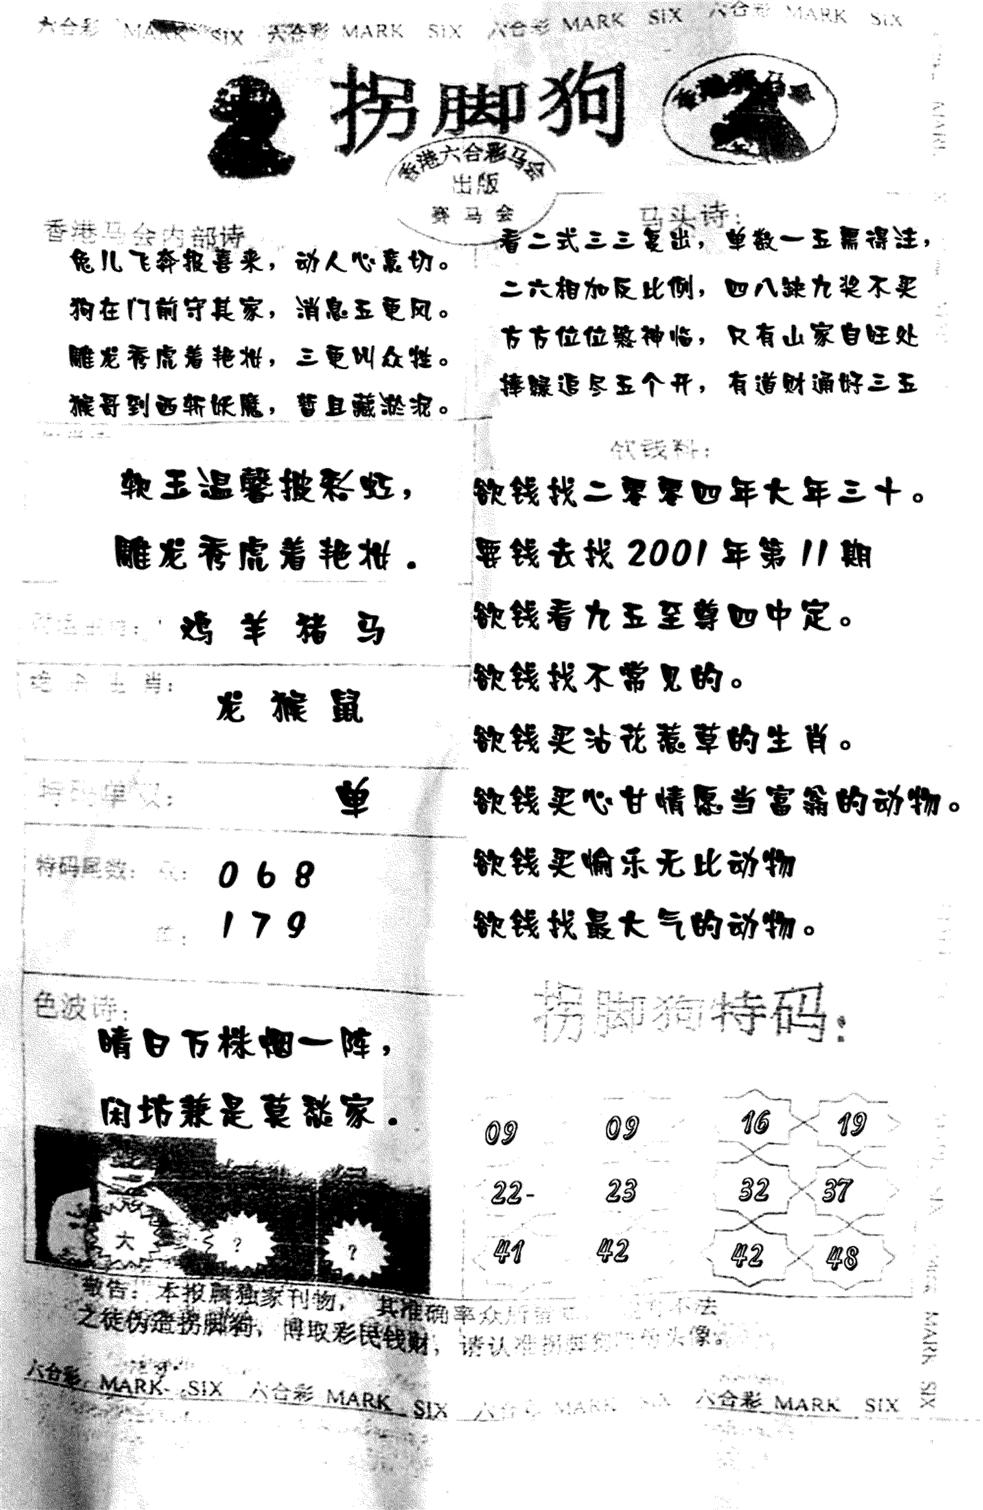 六合彩 MARK SIX 六合彩 MARK SIX 六合彩 MARK SIX 六合彩 MARK SIX
拐脚狗
香港赛马会
香港六合彩马会
出版
赛马会
香港马会内部诗
兔儿飞奔报喜来，动人心裹切。
狗在门前守其家，消息五更风。
雕龙秀虎着艳柑，三更叫众牲。
猴哥到西斩妖魔，暂且藏淤泥。
软玉温馨披彩虹，
雕龙秀虎着艳柑.
鸡 羊 猪 马
绝杀生肖：
龙 猴 鼠
特码单双：
单
特码尾数：双： 0 6 8
单： 1 7 9
色波诗：
晴日万株烟一阵，
闲坊兼是莫愁家.
大 ? ?
马头诗：
看二式三三复出，单数一五需得注，
二六相加反比例，四八缺九奖不买
方方位位鬶神临，只有山家自旺处
捧躁追尽五个开，有道财通好三五
欲钱料：
欲钱找二零零四年大年三十。
要钱去找 2001 年第 11 期
欲钱看九五至尊四中定。
欲钱找不常见的。
欲钱买沾花惹草的生肖。
欲钱买心甘情愿当富翁的动物。
欲钱买愉乐无比动物
欲钱找最大气的动物。
拐脚狗特码：
09 09 16 19
22- 23 32 37
41 42 42 48
敬告：本报属独家刊物，其准确率众所 不法
之徒伪造拐脚狗，博取彩民钱财，请认准拐脚狗 头像。
六合彩 MARK SIX 六合彩 MARK SIX 六合彩 MARK SIX 六合彩 MARK SIX
MARK SIX